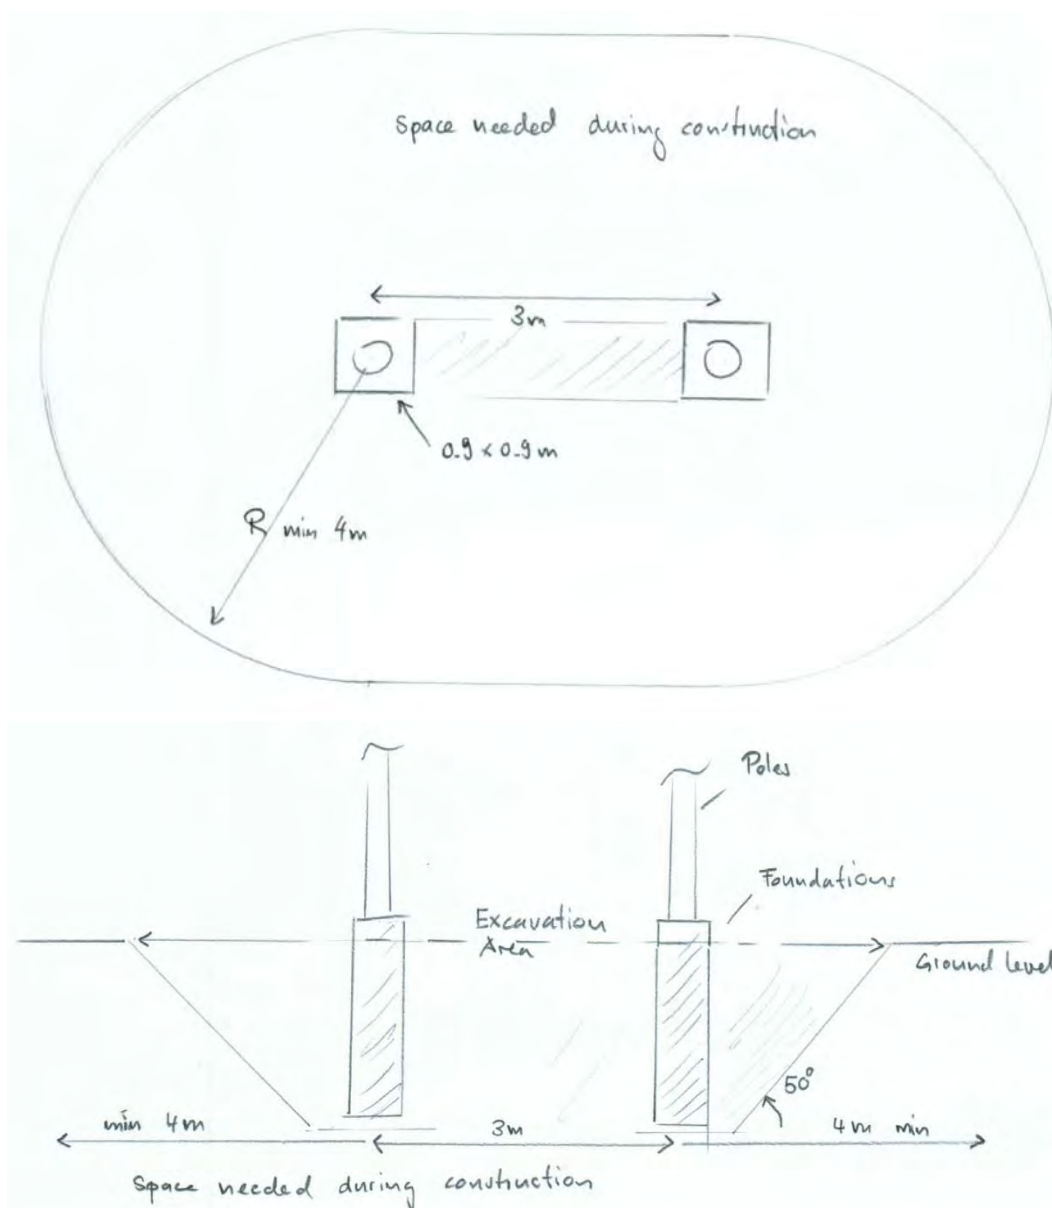 Space needed during construction
3m
0.9 x 0.9 m
R min 4m
Poles
Foundations
Excavation
Area
Ground level
50°
min 4m
3m
4m min
Space needed during construction